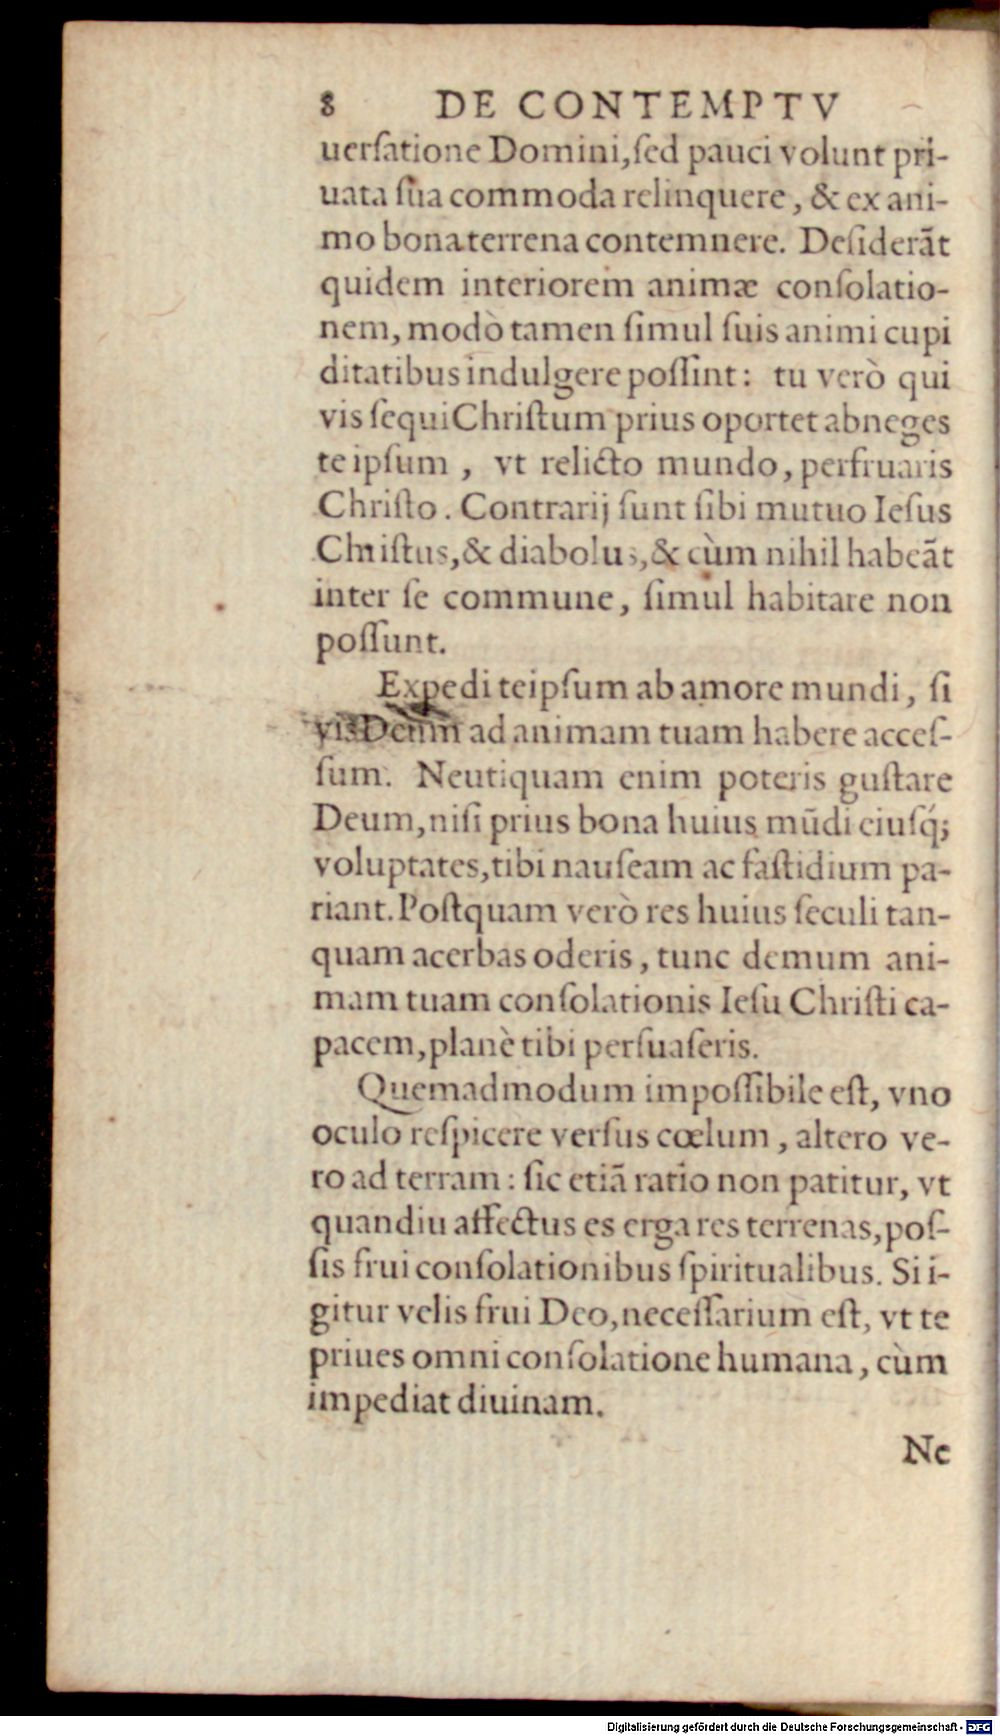 8 DE CONTEMPTV
uerſatione Domini, ſed pauci volunt pri-
uata ſua commoda relinquere, & ex ani-
mo bona terrena contemnere. Deſiderãt
quidem interiorem animæ conſolatio-
nem, modò tamen ſimul ſuis animi cupi
ditatibus indulgere poſſint: tu verò qui
vis ſequi Chriſtum prius oportet abneges
teipſum, vt relicto mundo, perfruaris
Chriſto. Contrarij ſunt ſibi mutuo Ieſus
Chriſtus, & diabolus, & cùm nihil habeãt
inter ſe commune, ſimul habitare non
poſſunt.
Expedi teipſum ab amore mundi, ſi
vis Deum ad animam tuam habere acceſ-
ſum. Neutiquam enim poteris guſtare
Deum, niſi prius bona huius mũdi eiuſq́;
voluptates, tibi nauſeam ac faſtidium pa-
riant. Poſtquam verò res huius ſeculi tan-
quam acerbas oderis, tunc demum ani-
mam tuam conſolationis Ieſu Chriſti ca-
pacem, planè tibi perſuaſeris.
Quemadmodum impoſſibile eſt, vno
oculo reſpicere verſus cœlum, altero ve-
ro ad terram: ſic etiã ratio non patitur, vt
quandiu affectus es erga res terrenas, poſ-
ſis frui conſolationibus ſpiritualibus. Si i-
gitur velis frui Deo, neceſſarium eſt, vt te
priues omni conſolatione humana, cùm
impediat diuinam.
Ne
Digitalisierung gefördert durch die Deutsche Forschungsgemeinschaft - DFG